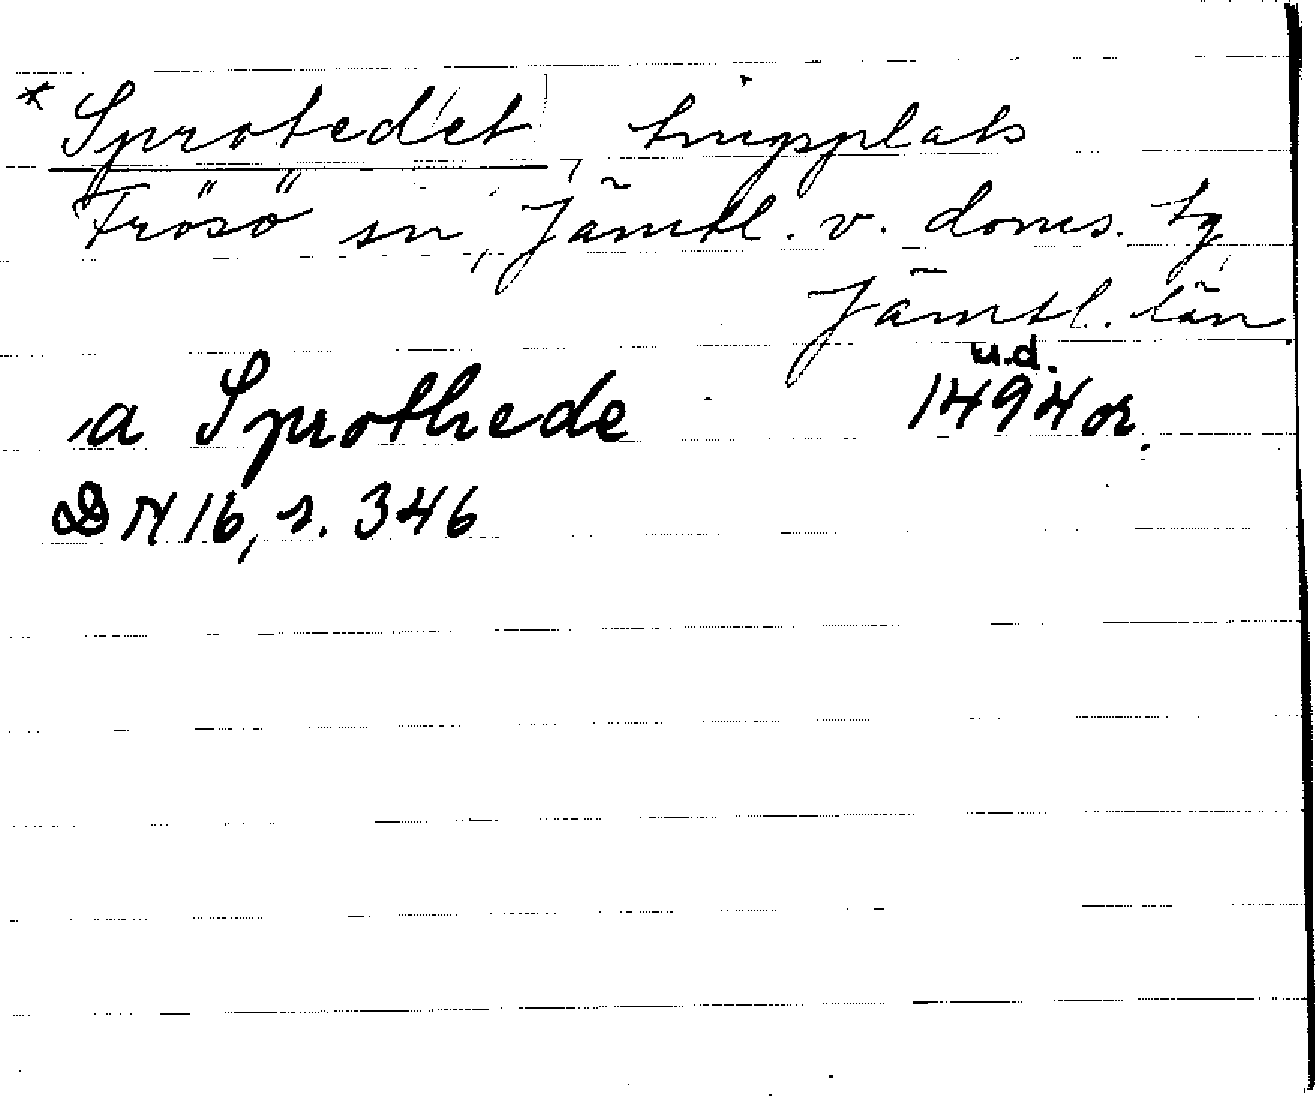 * Sprotedet, tingsplats
Frösö sn, Jämtl. v. doms. tg
Jämtl. län
u.d.
a Sprothede 1494 or.
DN 16, s. 346